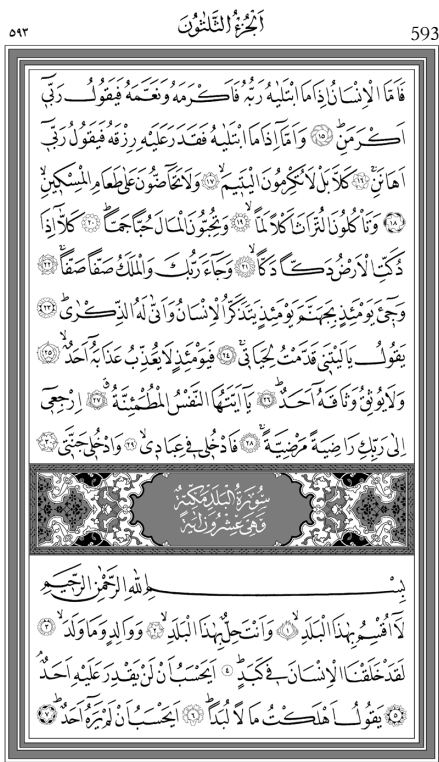 ٥٩٣ اَلْجُزْءُ الثَّلٰثُونَ 593
فَاَمَّا الْاِنْسَانُ اِذَا مَا ابْتَلٰيهُ رَبُّهُ فَاَكْرَمَهُ وَنَعَّمَهُ فَيَقُولُ رَبّٖٓي
اَكْرَمَنِۜ ﴿١٥﴾ وَاَمَّٓا اِذَا مَا ابْتَلٰيهُ فَقَدَرَ عَلَيْهِ رِزْقَهُ فَيَقُولُ رَبّٖٓي
اَهَانَنِۚ ﴿١٦﴾ كَلَّا بَلْ لَا تُكْرِمُونَ الْيَتٖيمَۙ ﴿١٧﴾ وَلَا تَحَٓاضُّونَ عَلٰى طَعَامِ الْمِسْكٖينِۙ
﴿١٨﴾ وَتَأْكُلُونَ التُّرَاثَ اَكْلاً لَماًّۙ ﴿١٩﴾ وَتُحِبُّونَ الْمَالَ حُباًّ جَماًّۜ ﴿٢٠﴾ كَلَّٓا اِذَا
دُكَّتِ الْاَرْضُ دَكاًّ دَكاًّۙ ﴿٢١﴾ وَجَٓاءَ رَبُّكَ وَالْمَلَكُ صَفاًّ صَفاًّۚ ﴿٢٢﴾
وَجٖٓيءَ يَوْمَئِذٍ بِجَهَنَّمَ يَوْمَئِذٍ يَتَذَكَّرُ الْاِنْسَانُ وَاَنّٰى لَهُ الذِّكْرٰىۜ ﴿٢٣﴾
يَقُولُ يَا لَيْتَنٖي قَدَّمْتُ لِحَيَاتٖيۚ ﴿٢٤﴾ فَيَوْمَئِذٍ لَا يُعَذِّبُ عَذَابَهُٓ اَحَدٌۙ ﴿٢٥﴾
وَلَا يُوثِقُ وَثَاقَهُٓ اَحَدٌۜ ﴿٢٦﴾ يَٓا اَيَّتُهَا النَّفْسُ الْمُطْمَئِنَّةُۗ ﴿٢٧﴾ اِرْجِعٖٓي
اِلٰى رَبِّكِ رَاضِيَةً مَرْضِيَّةًۚ ﴿٢٨﴾ فَادْخُلٖي فٖي عِبَادٖيۙ ﴿٢٩﴾ وَادْخُلٖي جَنَّتٖي ﴿٣٠﴾
سُورَةُ الْبَلَدِ مَكِّيَّةٌ
وَهِيَ عِشْرُونَ اٰيَةً
بِسْمِ اللّٰهِ الرَّحْمٰنِ الرَّحٖيمِ
لَٓا اُقْسِمُ بِهٰذَا الْبَلَدِۙ ﴿١﴾ وَاَنْتَ حِلٌّ بِهٰذَا الْبَلَدِۙ ﴿٢﴾ وَوَالِدٍ وَمَا وَلَدَۙ ﴿٣﴾
لَقَدْ خَلَقْنَا الْاِنْسَانَ فٖي كَبَدٍۜ ﴿٤﴾ اَيَحْسَبُ اَنْ لَنْ يَقْدِرَ عَلَيْهِ اَحَدٌۢ
﴿٥﴾ يَقُولُ اَهْلَكْتُ مَالاً لُبَداًۜ ﴿٦﴾ اَيَحْسَبُ اَنْ لَمْ يَرَهُٓ اَحَدٌۜ ﴿٧﴾